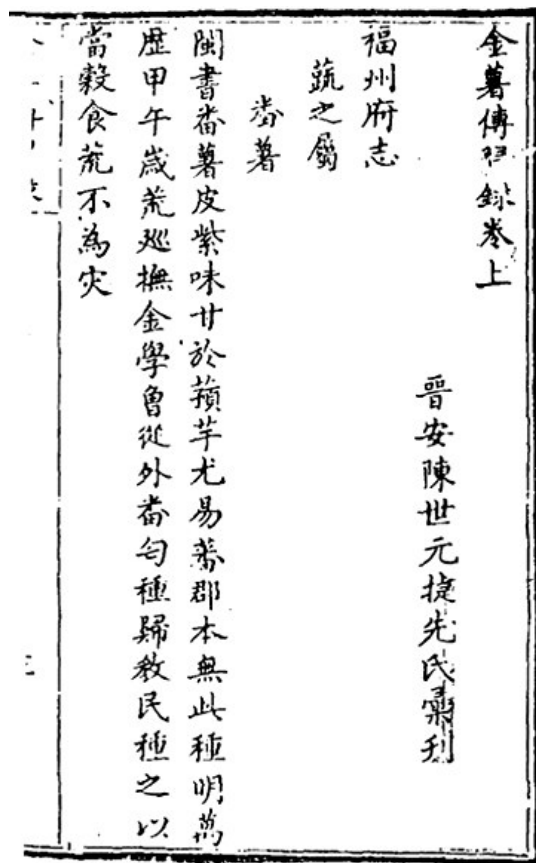 金薯傳習錄卷上
晉安陳世元捷先氏彙刊
福州府志
蔬之屬
畨薯
閩書畨薯皮紫味甘於蘋芋尤易蕃郡本無此種明萬
歴甲午歲荒廵撫金學曾從外畨匄種歸教民種之以
當榖食荒不為灾